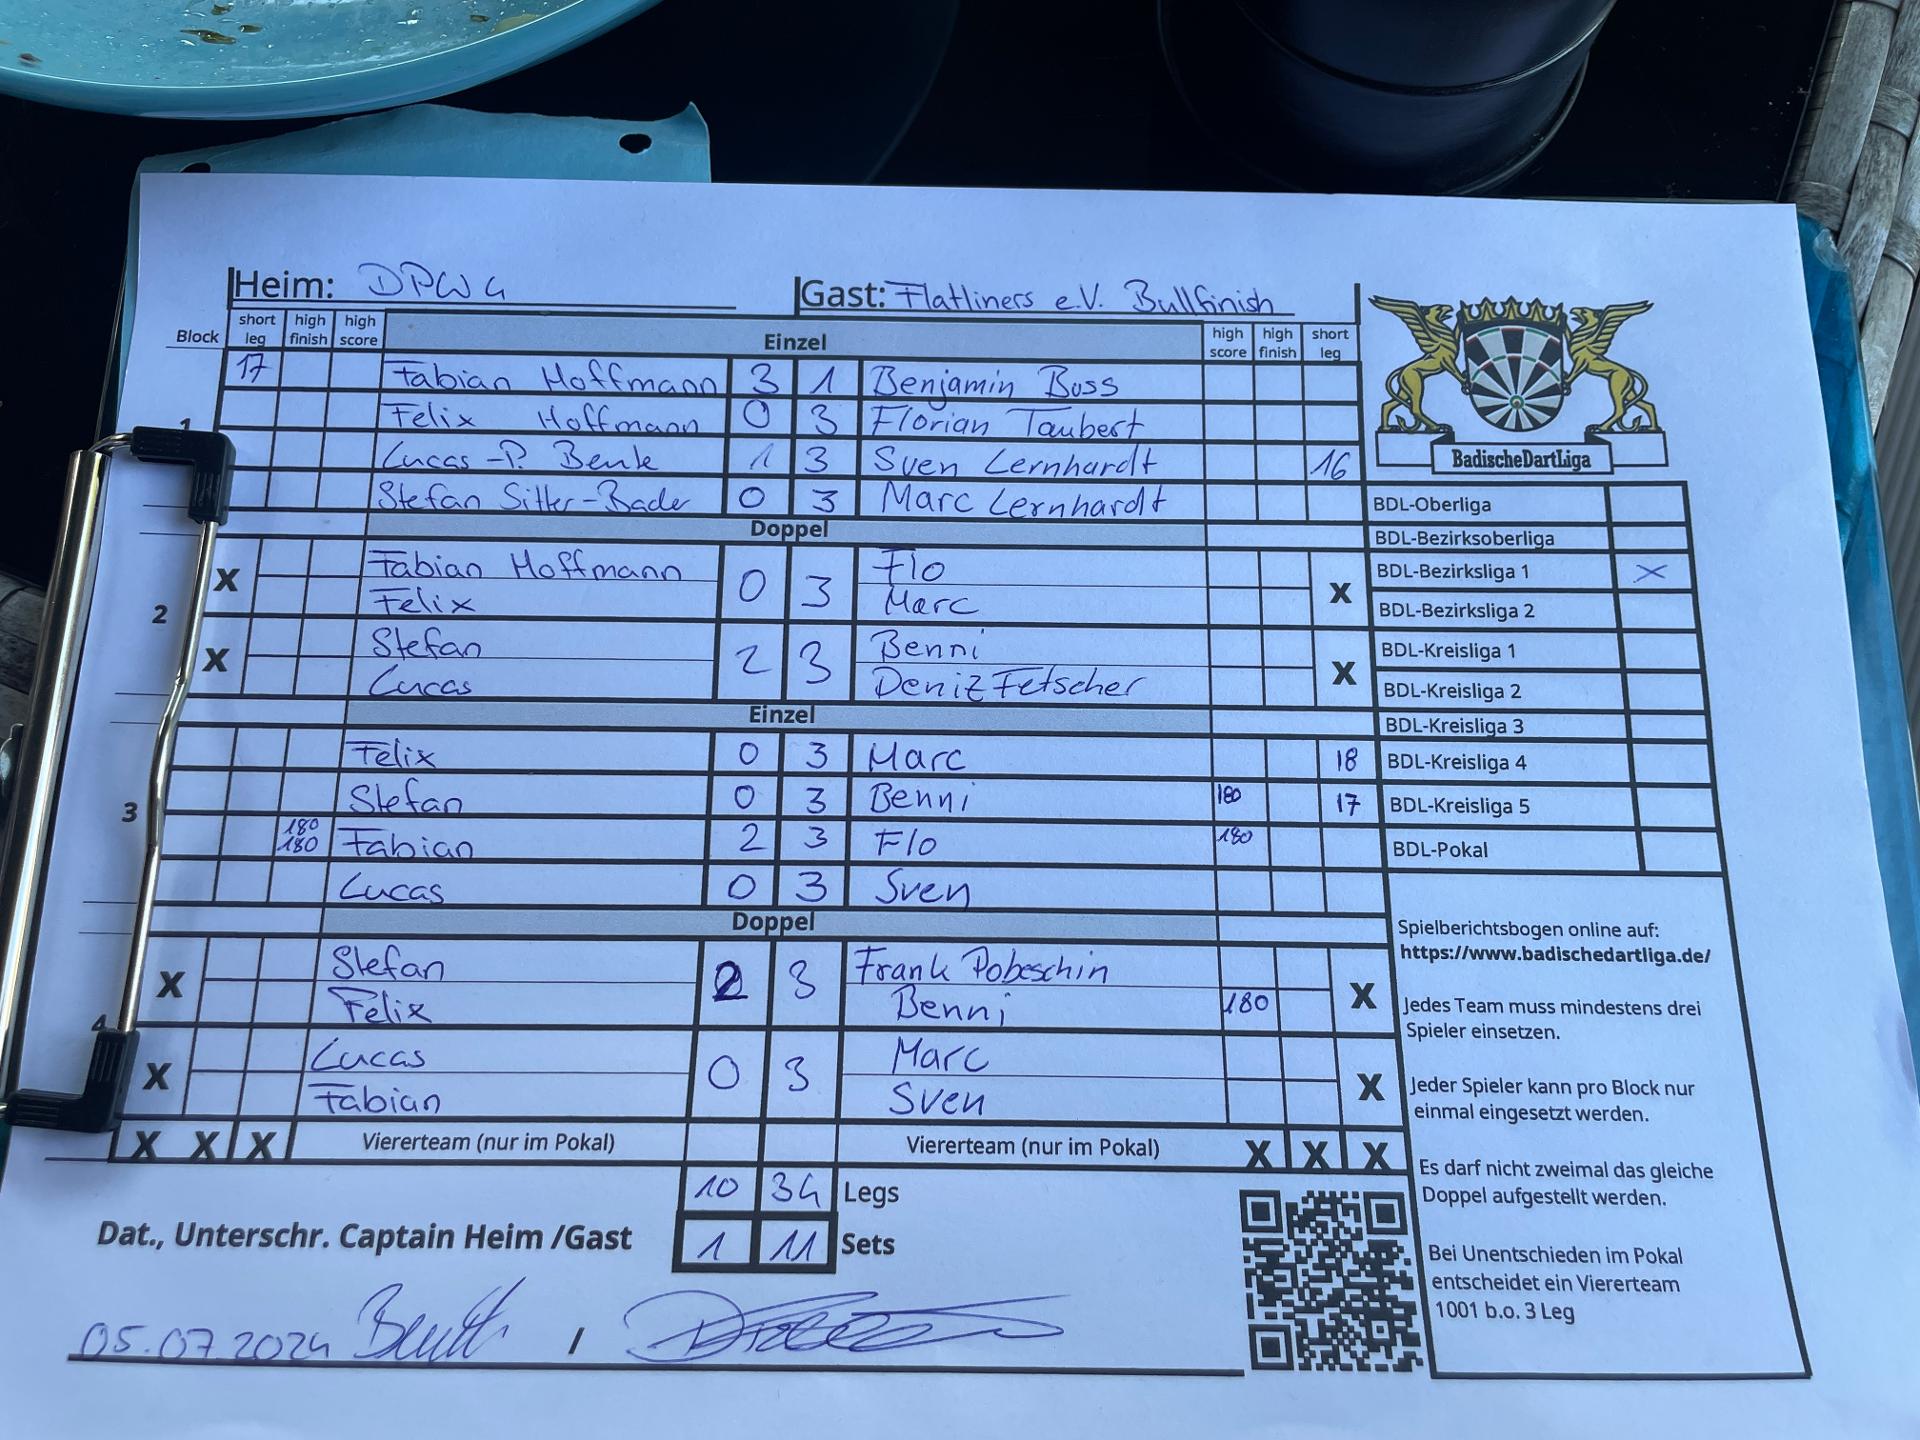 Heim: DPW 4 Gast: Flatliners e.V. Bullfinish
Block short leg high finish high score Einzel high score high finish short leg
17 Fabian Hoffmann 3 1 Benjamin Buss
1 Felix Hoffmann 0 3 Florian Taubert
Lucas-P. Benk 1 3 Sven Lernhardt 16
Stefan Sitter-Bader 0 3 Marc Lernhardt
BadischeDartLiga
Doppel
2
X Fabian Hoffmann 0 3 Flo X
Felix Marc
X Stefan 2 3 Benni X
Lucas Deniz Fetscher
Einzel
3
Felix 0 3 Marc 18
Stefan 0 3 Benni 180 17
180 180 Fabian 2 3 Flo 180
Lucas 0 3 Sven
Doppel
4
X Stefan 2 3 Frank Pobeschin X
Felix Benni 180
X Lucas 0 3 Marc X
Fabian Sven
X X X Viererteam (nur im Pokal) Viererteam (nur im Pokal) X X X
10 34 Legs
1 11 Sets
Dat., Unterschr. Captain Heim /Gast
05.07.2024 /
BDL-Oberliga
BDL-Bezirksoberliga
BDL-Bezirksliga 1 X
BDL-Bezirksliga 2
BDL-Kreisliga 1
BDL-Kreisliga 2
BDL-Kreisliga 3
BDL-Kreisliga 4
BDL-Kreisliga 5
BDL-Pokal
Spielberichtsbogen online auf:
https://www.badischedartliga.de/
Jedes Team muss mindestens drei
Spieler einsetzen.
Jeder Spieler kann pro Block nur
einmal eingesetzt werden.
Es darf nicht zweimal das gleiche
Doppel aufgestellt werden.
Bei Unentschieden im Pokal
entscheidet ein Viererteam
1001 b.o. 3 Leg